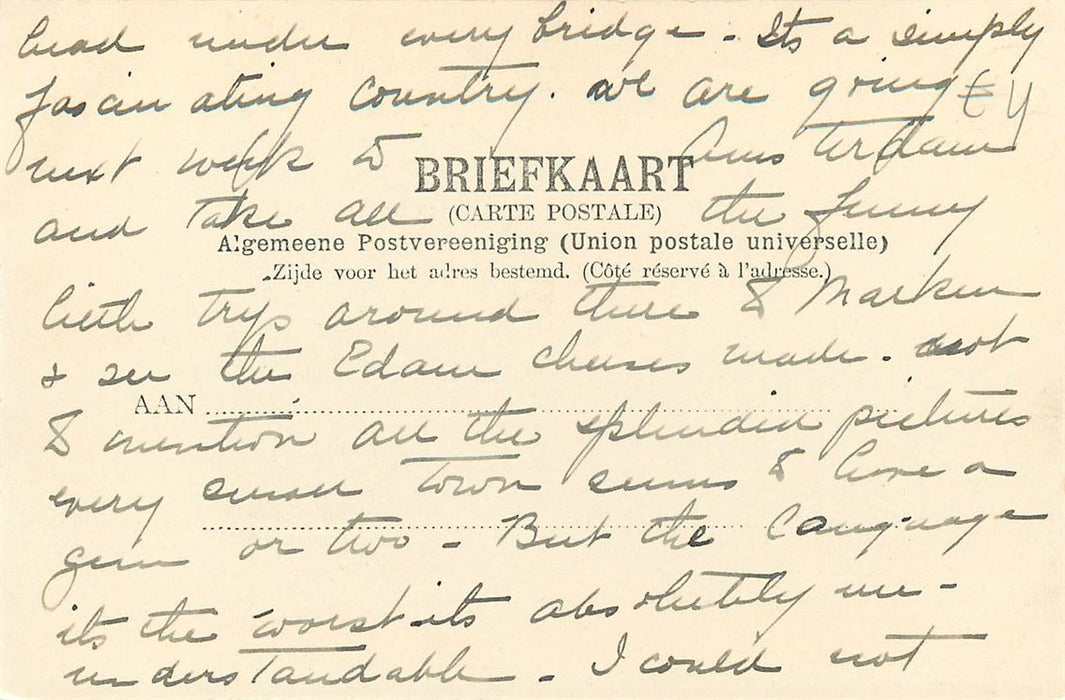 head under every bridge - Its a simply
fascinating country. we are going
next week to Amsterdam
BRIEFKAART
and take all the funny
(CARTE POSTALE)
Algemeene Postvereeniging (Union postale universelle)
Zijde voor het adres bestemd. (Côté réservé à l'adresse.)
little trys around there to Marken
& see the Edam cheeses made. not
AAN
to mention all the splendid pictures
every small town seems to have a
gem or two - But the language
its the worst its absolutely un-
understandable - I could not